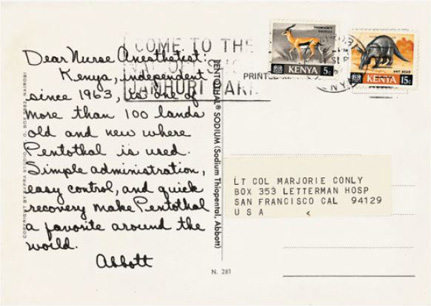 COME TO THE
Dear Nurse Anesthetist:
Kenya, independent
since 1963, is one of
more than 100 lands
old and new where
Pentothal is used.
Simple administration,
easy control, and quick
recovery make Pentothal
a favorite around the
world.
Abbott
PENTOTHAL® SODIUM (Sodium Thiopental, Abbott)
PRINTED
KENYA 5c
KENYA 15c
LT COL MARJORIE CONLY
BOX 353 LETTERMAN HOSP
SAN FRANCISCO CAL 94129
U S A
N. 281